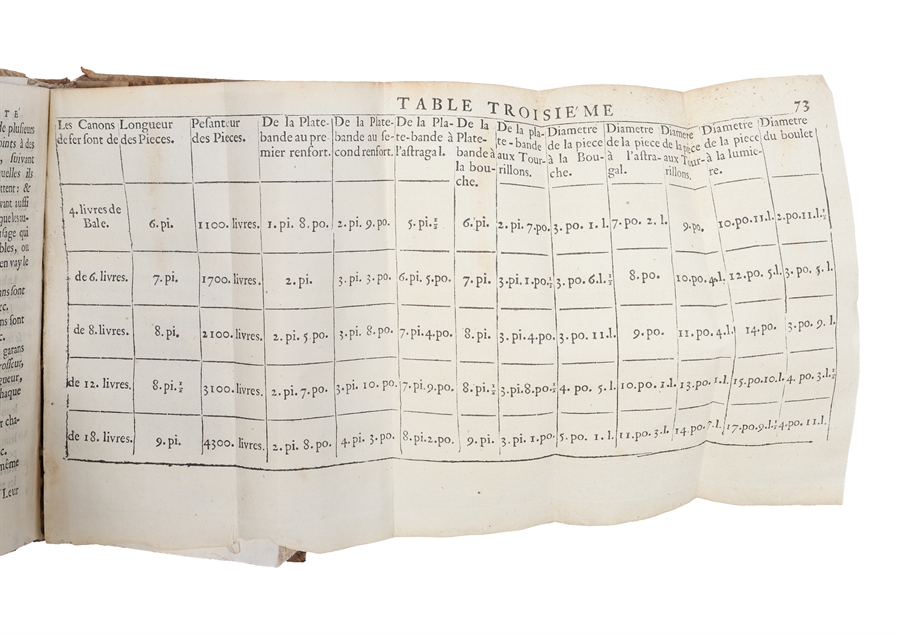 TE
de plusieurs
oints à des
, suivant
quelles ils
ttent; &
vant aussi
que les au-
sage qui
bles, ou
en vay le
ans sont
ec.
ns sont
c.
garans
rosseur,
gueur,
haque
r cha-
c.
même
Leur
TABLE TROISIE'ME
73
Les Canons de fer sont de
Longueur des Pieces.
Pesanteur des Pieces.
De la Plate-bande au premier renfort.
De la Plate-bande au second renfort.
De la Plate-bande à l'astragal.
De la Plate-bande à la bouche.
De la plate-bande aux Tourrillons.
Diametre de la piece à la Bouche.
Diametre de la piece à l'astragal.
Diametre de la piece aux Tourrillons.
Diametre de la piece à la lumiere.
Diametre du boulet
4. livres de Bale. 6. pi. 1100. livres. 1. pi. 8. po. 2. pi. 9. po. 5. pi. ½ 6. pi. 2. pi. 7. po. 3. po. 1. l. 7. po. 2. l. 9. po. 10. po. 11. l. 2. po. 11. l. ½
de 6. livres. 7. pi. 1700. livres. 2. pi. 3. pi. 3. po. 6. pi. 5. po. 7. pi. 3. pi. 1. po. ½ 3. po. 6. l. ½ 8. po. 10. po. 4. l. 12. po. 5. l. 3. po. 5. l.
de 8. livres. 8. pi. 2100. livres. 2. pi. 5. po. 3. pi. 8. po. 7. pi. 4. po. 8. pi. 3. pi. 4. po. 3. po. 11. l. 9. po. 11. po. 4. l. 14. po. 3. po. 9. l.
de 12. livres. 8. pi. ½ 3100. livres. 2. pi. 7. po. 3. pi. 10. po. 7. pi. 9. po. 8. pi. ½ 3. pi. 8. po. ½ 4. po. 5. l. 10. po. 1. l. 13. po. 1. l. 15. po. 10. l. 4. po. 3. l. ½
de 18. livres. 9. pi. 4300. livres. 2. pi. 8. po. 4. pi. 3. po. 8. pi. 2. po. 9. pi. 3. pi. 1. po. 5. po. 1. l. 11. po. 3. l. 14. po. 7. l. 17. po. 9. l. ½ 4. po. 11. l.